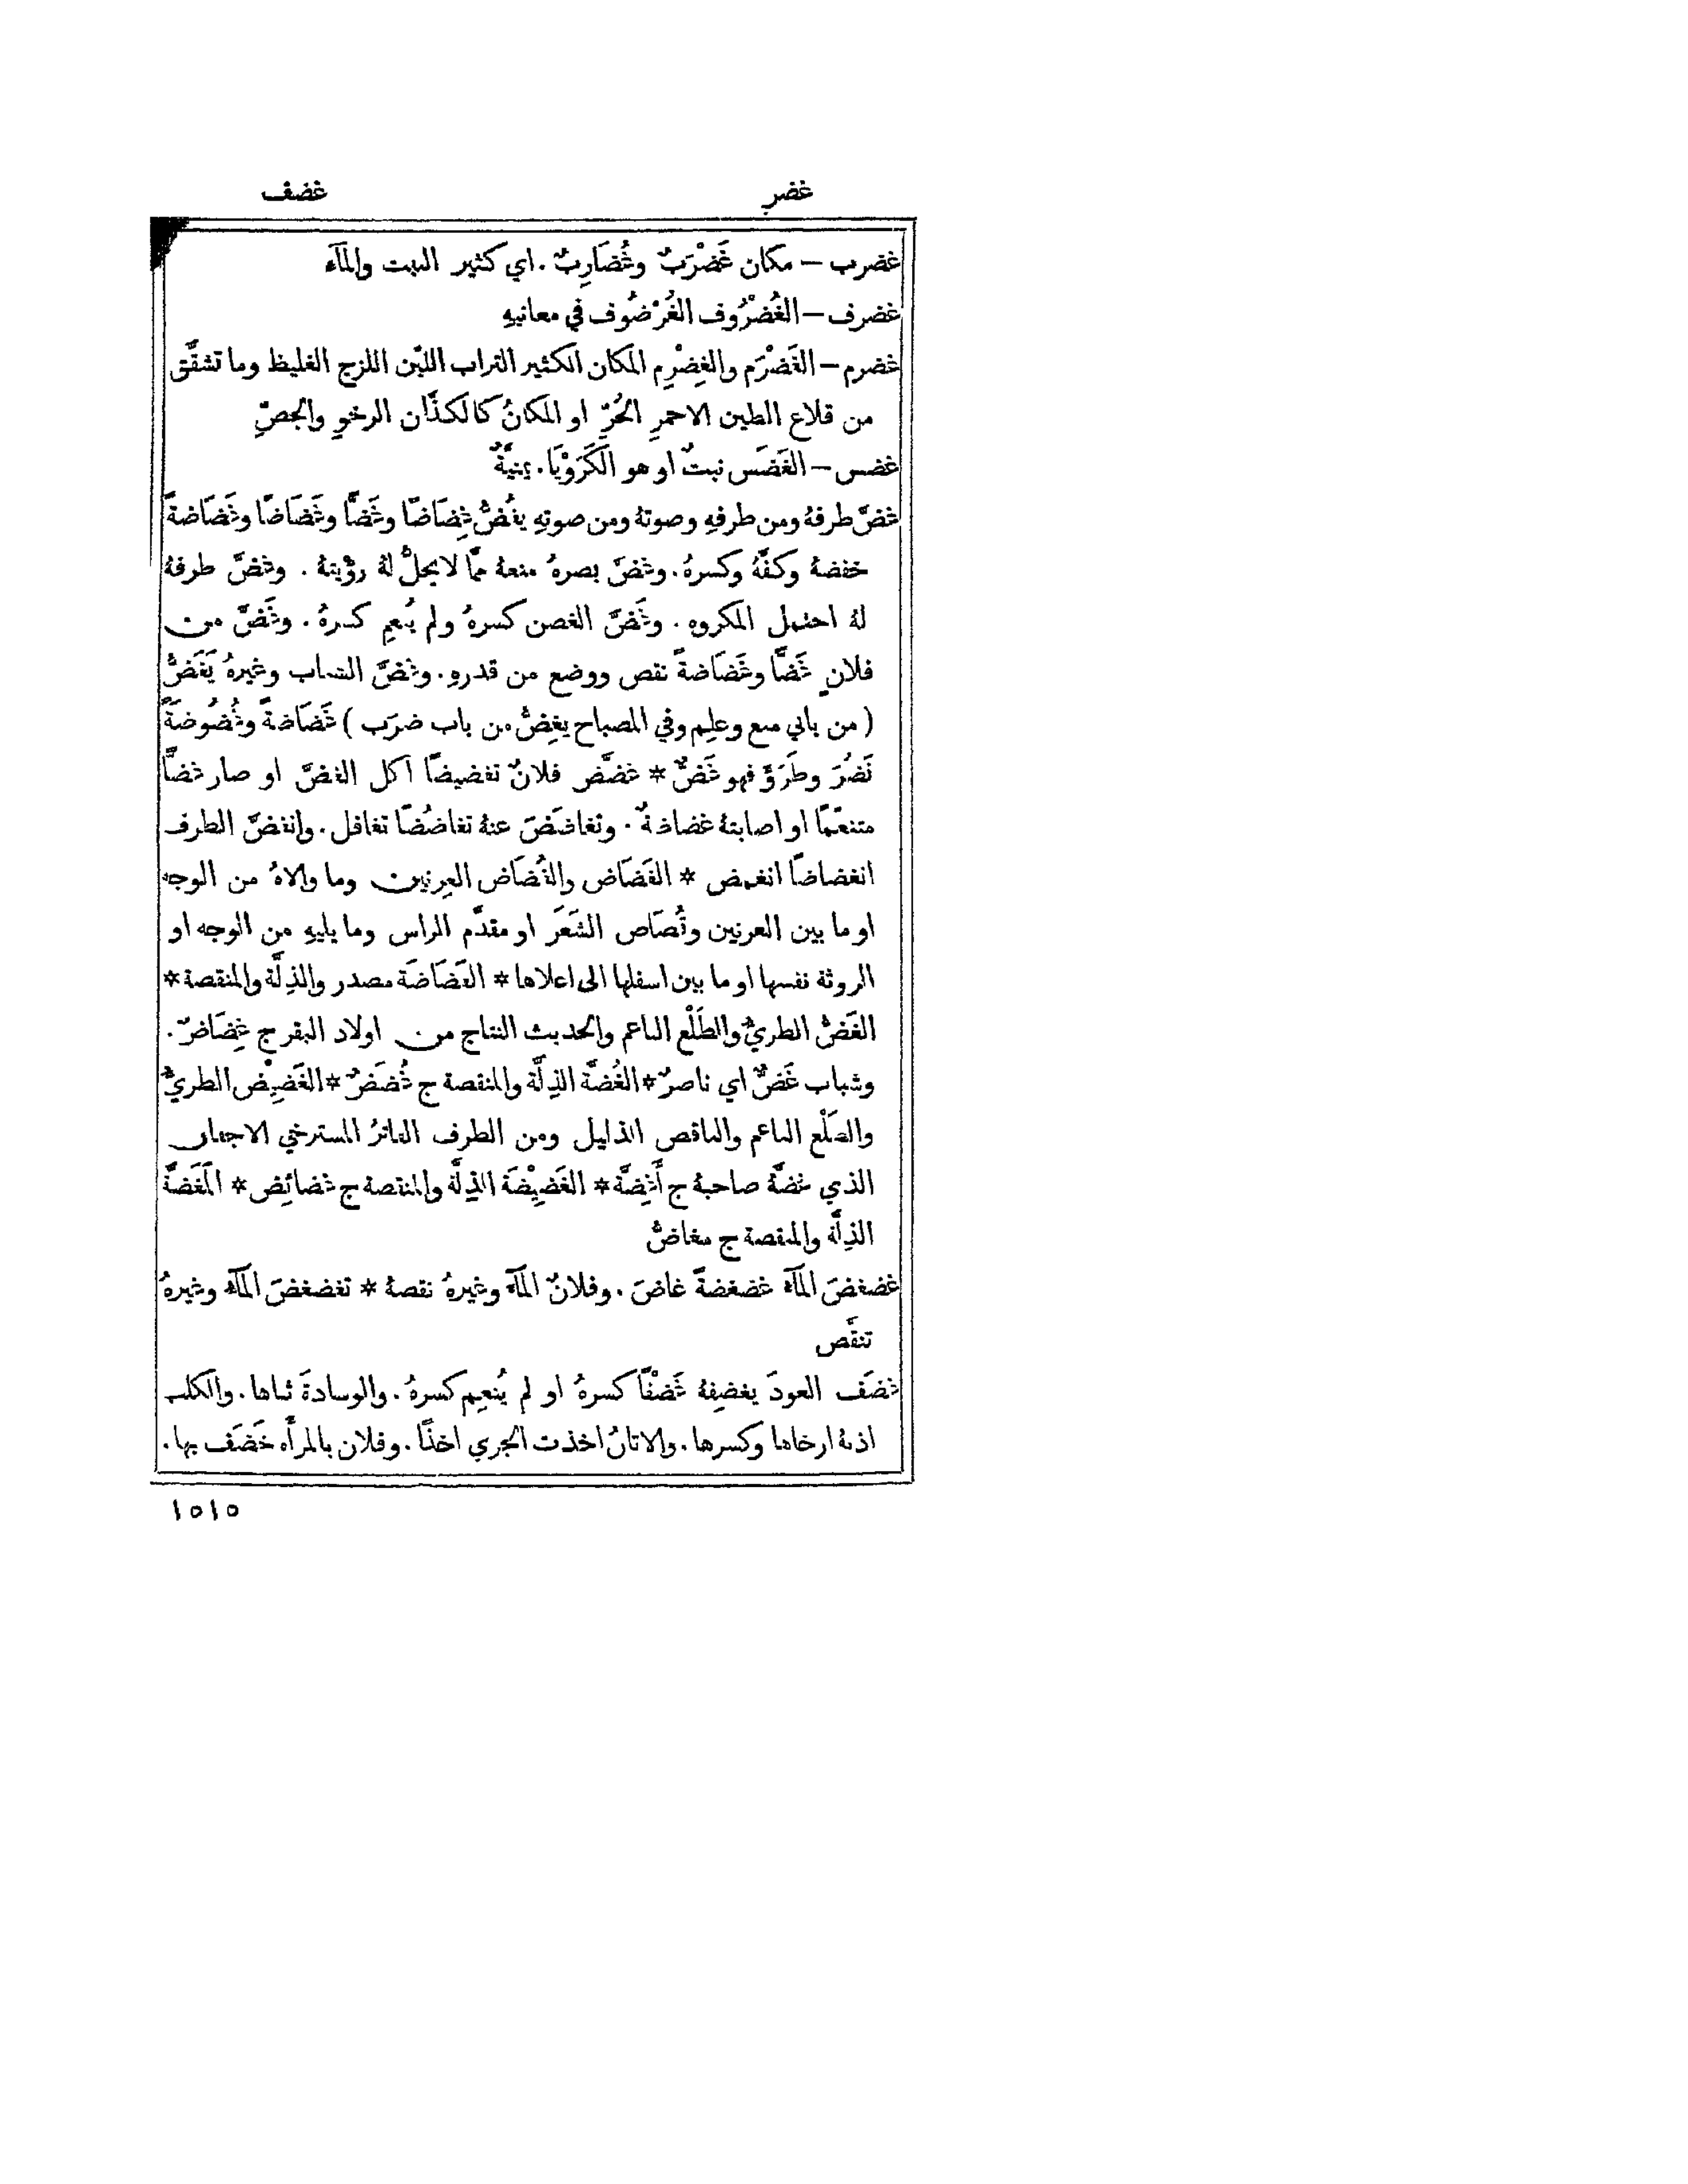 غضر
غضف
غضرب – مكان غَضْرَبٌ وغُضَارِبٌ . اي كثير النبت والمآء
غضرف – الغُضْرُوف الغُرْضُوف في معانيهِ
غضرم – الغَضْرَم والغِضْرِم المكان الكثير التراب الليّن اللزج الغليظ وما تشقَّق
من قلاع الطين الاحمرِ الحُرِّ او المكانُ كالكذَّان الرخوِ والجصِّ
غضس – الغَضَس نبتٌ او هو الكَرَوْيَا . يمنيَّةٌ
غضَّ طرفهُ ومن طرفهِ وصوتهُ ومن صوتهِ يغُضُّ غِضَاضًا وغَضًّا وغَضَاضًا وغَضَاضةً
خفضهُ وكفَّهُ وكسرهُ . وغضَّ بصرهُ منعهُ ممَّا لا يحلُّ لهُ رؤيتهُ . وغضَّ طرفهُ
لهُ احتمل المكروه . وغَضَّ الغصن كسرهُ ولم يُنعِم كسرهُ . وغَضَّ من
فلانٍ غَضًّا وغَضَاضةً نقص ووضع من قدرهِ . وغضَّ الشاب وغيرهُ يَغَضُّ
( من بابي سمع وعلِم وفي المصباح يغِضُّ من باب ضرَب ) غَضَاضةً وغُضُوضَةً
نَضُرَ وطَرَؤَ فهو غَضٌّ * غضَّض فلانٌ تغضيضًا اكل الغضَّ او صار غضًّا
متنعّمًا او اصابتهُ غضاضةٌ . وتغاضَضَ عنهُ تغاضُضًا تغافل . وانغضَّ الطرف
انغضاضًا انغمض * الغَضَاض والغُضَاض العِرنين وما والاهُ من الوجه
او ما بين العرنين وقُصَاص الشَعَر او مقدَّم الراس وما يليهِ من الوجه او
الروثة نفسها او ما بين اسفلها الى اعلاها * الغَضَاضَة مصدر والذِلَّة والمنقصة *
الغَضُّ الطريُّ والطَلْع الناعم والحديث النتاج من اولاد البقر ج غِضَاضٌ .
وشباب غَضٌّ اي ناضرٌ * الغُضَّة الذِلَّة والمنقصة ج غُضَضٌ * الغَضِيْض الطريُّ
والطَلْع الناعم والناقص الذليل ومن الطرف الفاترُ المسترخي الاجفان
الذي غضَّهُ صاحبهُ ج أَغِضَّة * الغَضِيْضَة الذِلَّة والمنقصة ج غضائِض * المَغَضَّة
الذِلَّة والمنقصة ج مغاضُّ
غضغضَ المآءُ غضغضةً غاضَ . وفلانٌ المآءَ وغيرهُ نقصهُ * تغضغضَ المآءُ وغيرهُ
تنقَّص
غضَف العودَ يغضِفهُ غَضْفًا كسرهُ او لم يُنعِم كسرهُ . والوسادةَ ثناها . والكلب
اذنهُ ارخاها وكسرها . والاتانُ اخذت الجري اخذًا . وفلان بالمرأَة خَضَف بها .
١٥١٥